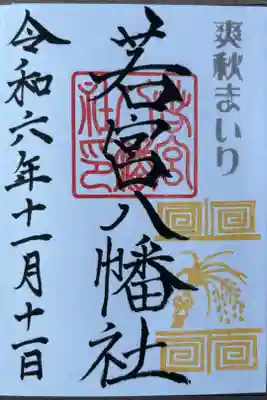 爽秋まいり
若宮八幡社
令和六年十一月十一日